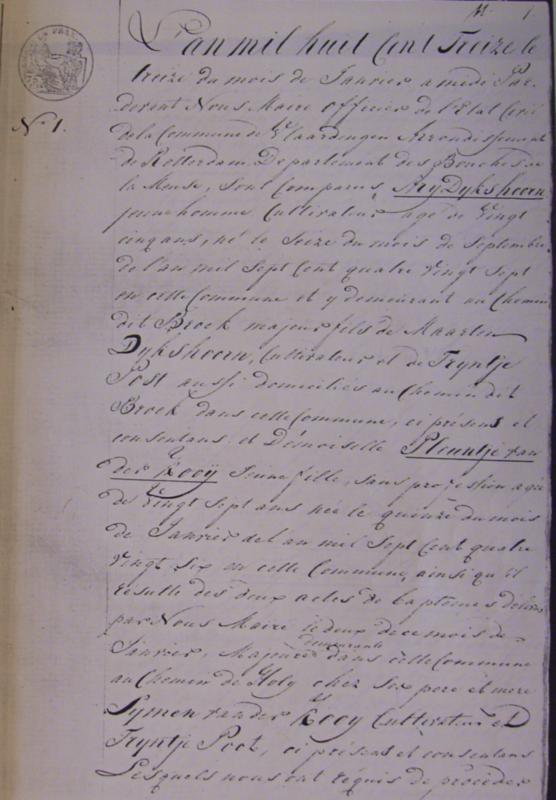 fol. 1.
L'an mil huit Cent Treize le
treize du mois de Janvier a midi Par
devant Nous Maire officier de l'Etat Civil
de la Commune de Vlaardingen Arrondissement
de Rotterdam. Departement des Bouches de
N.º 1.
la Meuse, sont Comparus, Ary Dykshoorn
jeune homme Cultivateur agé de Vingt
cinq ans, né le Seize du mois de Septembre
de l'an mil Sept Cent quatre Vingt Sept
en cette Commune et y demeurant au Chemin
dit Broek majeur fils de Maarten
Dykshoorn, Cultivateur et de Tryntje
Post aussi domiciliés au Chemin dit
Broek dans cette Commune, ci présens et
consentans et Démoiselle Pleuntje van
der Kooÿ Jeune fille, sans profession agée
de Vingt Sept ans née le quinze du mois
de Janvier de l'an mil Sept Cent quatre
Vingt Six en cette Commune, ainsi qu'il
résulte des deux actes de baptêmes délivrés
par Nous Maire le deux de ce mois de
Janvier, Majeure demeurante dans cette Commune
au Chemin de Holy chez ses pere et mere
Symen van der Kooy Cultivateur et
Tryntje Poot, ci présens et consentans
Lesquels nous ont requis de procéder